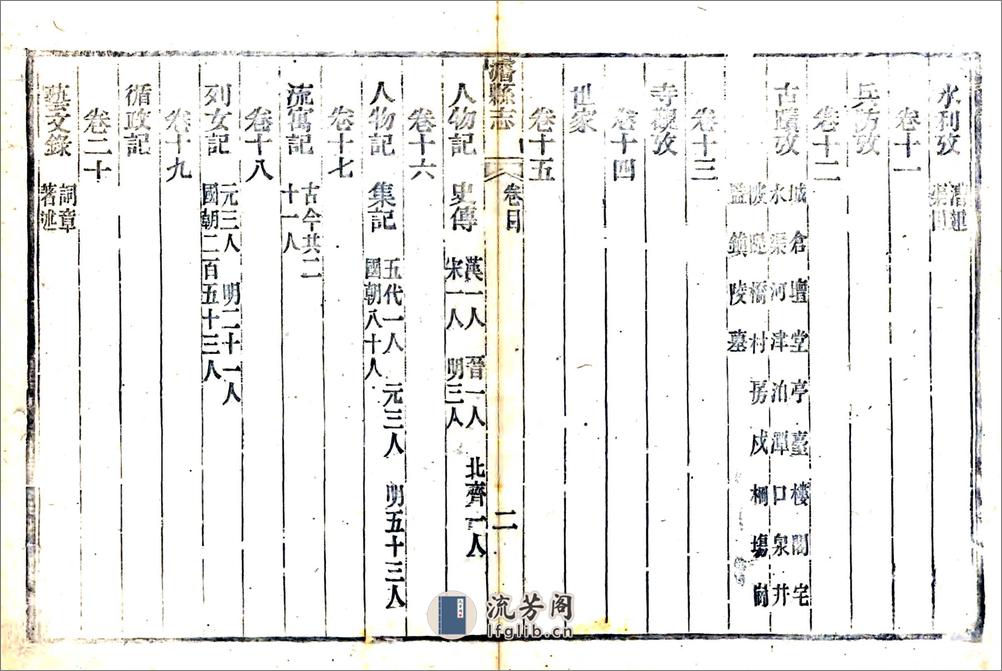 水利攷 渠目
卷十一
兵防攷
卷十二
古蹟攷 城倉壇堂亭臺樓閣宅
水渠河津泊潭口泉井
陂堤橋村房戍柵塲
鎮陵墓
卷十三
寺觀攷
卷十四
世家
卷十五
濬縣志 卷目 二
人物記 史傳 漢一人 晉一人 北齊一人
宋一人 明三人
卷十六
人物記 集記 五代一人 元三人 明五十三人
國朝八十人
卷十七
流寓記 古今共二
十一人
卷十八
列女記 元三人 明二十一人
國朝二百五十三人
卷十九
循政記
卷二十
藝文錄 詞章
著述
流芳阁
lfglib.cn